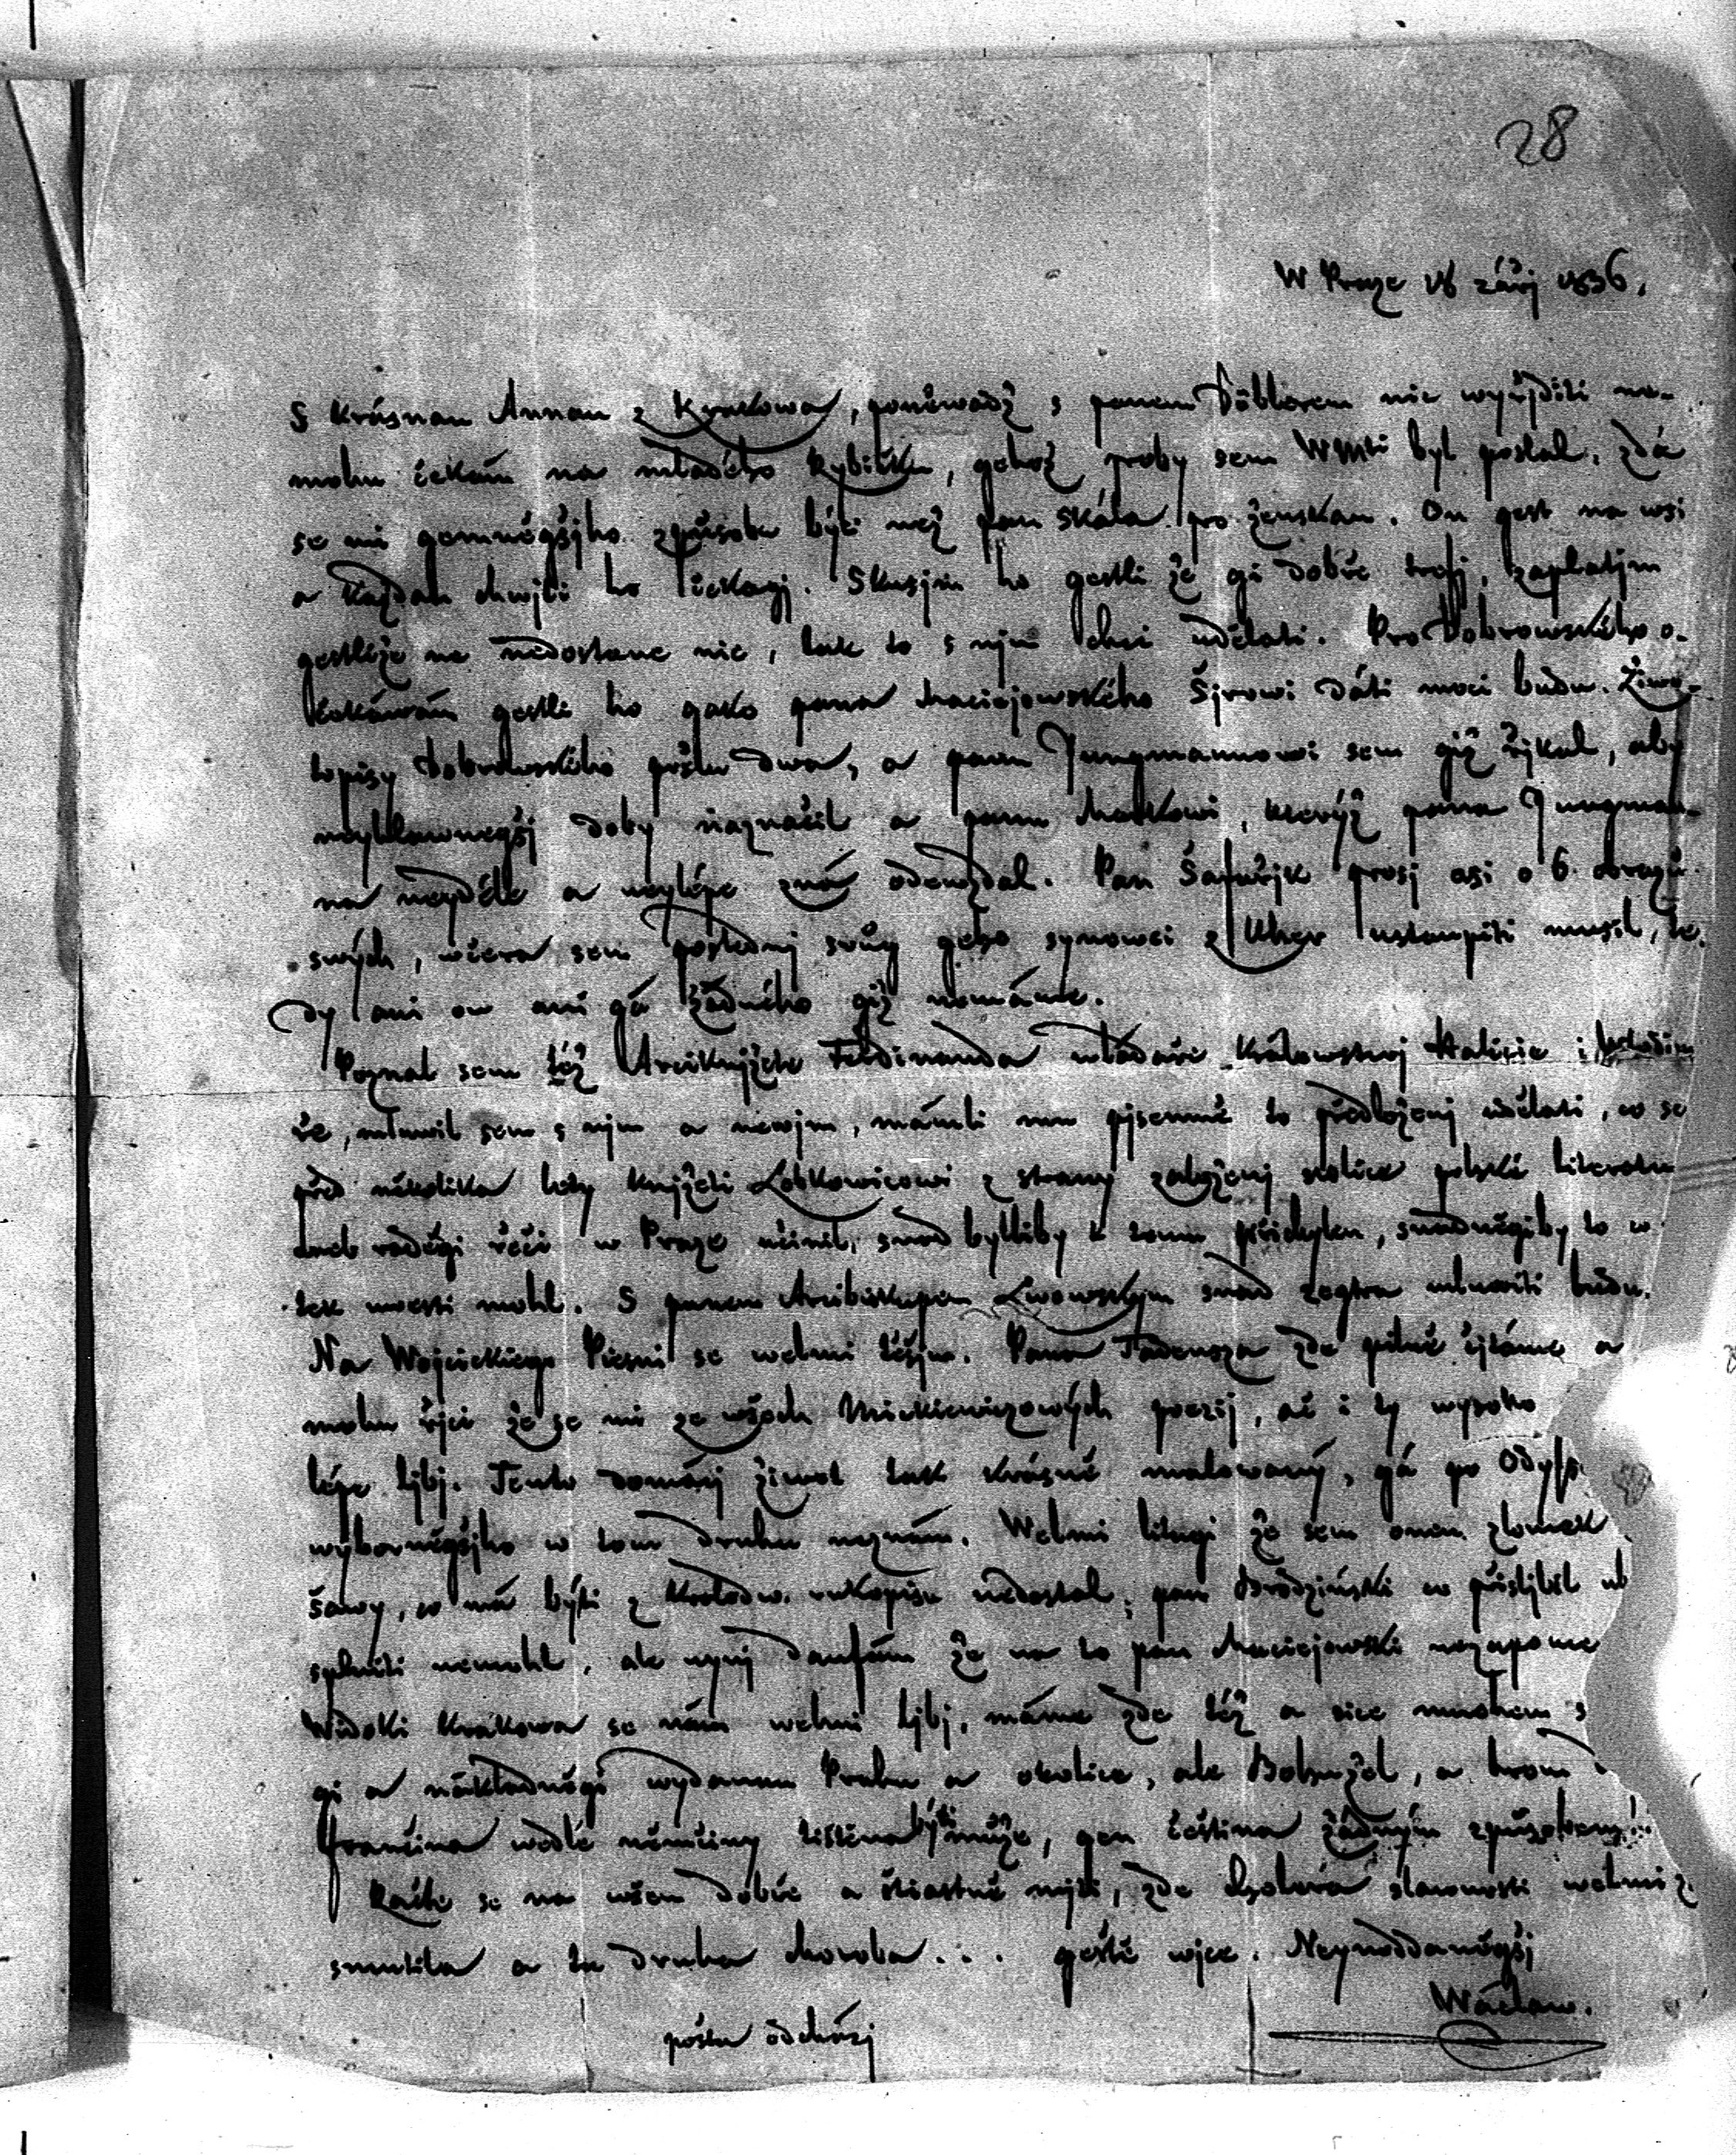 28
W Praze 16 zářj 1836.
S Krásnau Annau z Krakowa, poněwadž s panem Döblerem nic wyřjditi ne-
mohu čekám na mladého Rybičku, gehož proby sem WMti byl poslal, zdá
se mi gemněgšjho způsobu býti než pan Skála pro ženskau. On gest na wsi
a každau chwjli ho čekagj. Skusjm ho gestli že gi dobře trefj, zaplatjm
gestliže ne nedostane nic, tak to s njm chci udělati. Pro Dobrowského o-
čekáwám gestli ho gako pana Maciejowského Šjrowi dáti moci budu. Žiwo-
topisy Dobrowského pošlu dwa, a panu Jungmannowi sem giž řjkal, aby
neyhlawnegšj doby naznačil a panu Malkowi, kterýž pana Jungman-
na neydéle a neylépe zná odewzdal. Pan Šafařjk prosj asi o 6. obrazů
swých, wčera sem poslednj swůg geho synowci z Uher ustaupiti musil, te-
dy ani on ani gá žádného giž nemáme.
Poznal sem též Arciknjžete Ferdinanda wládaře Králowstwj Halicie i
ře, mluwil sem s njm a newjm, mámli mu pjsemně to předloženj udělati, co se
před několika lety knjžeti Lobkowicowi z strany založenj stolice polské literatu
aneb raděgi řeči w Praze učinil, snad bylliby k tomu přichylen, snadněgiby to w
tek uwesti mohl. S panem Arcibiskupem Lwowským snad zegtra mluwiti budu.
Na Wojcickiego Piesni se welmi těšjm. Pana Tadeusza zde pilně čjtáme a
mohu řjci že se mi ze wšech Mickiewiczowých poezij, ač i ty wysoko
lépe ljbj. Tento domácj žiwot tak krásně malowaný, gá po Odyss
wýborněgšjho w tom druhu neznám. Welmi lituji že sem onen zlomek
šawy, co má býti z Kralodw. rukopisu nedostal, pan Brodziński co přisljbil
splniti nemohl, ale nynj daufám že na to pan Maciejowski nezapome
Widoki Krakowa se nám welmi ljbj, máme zde též a sice mnohem s
gi a nákladněgi wydanau Prahu a okolice, ale Bohužel, a hrom
frančina wedlé němčiny tištěna býti může, gen čeština žádným způsobem!
Račte se na wšem dobře a šťastně mjti, zde cholera slawnosti welmi z
smutila a ta druha choroba... geště wjce. Neypoddaněgšj
Wácslaw.
pošta odcházj